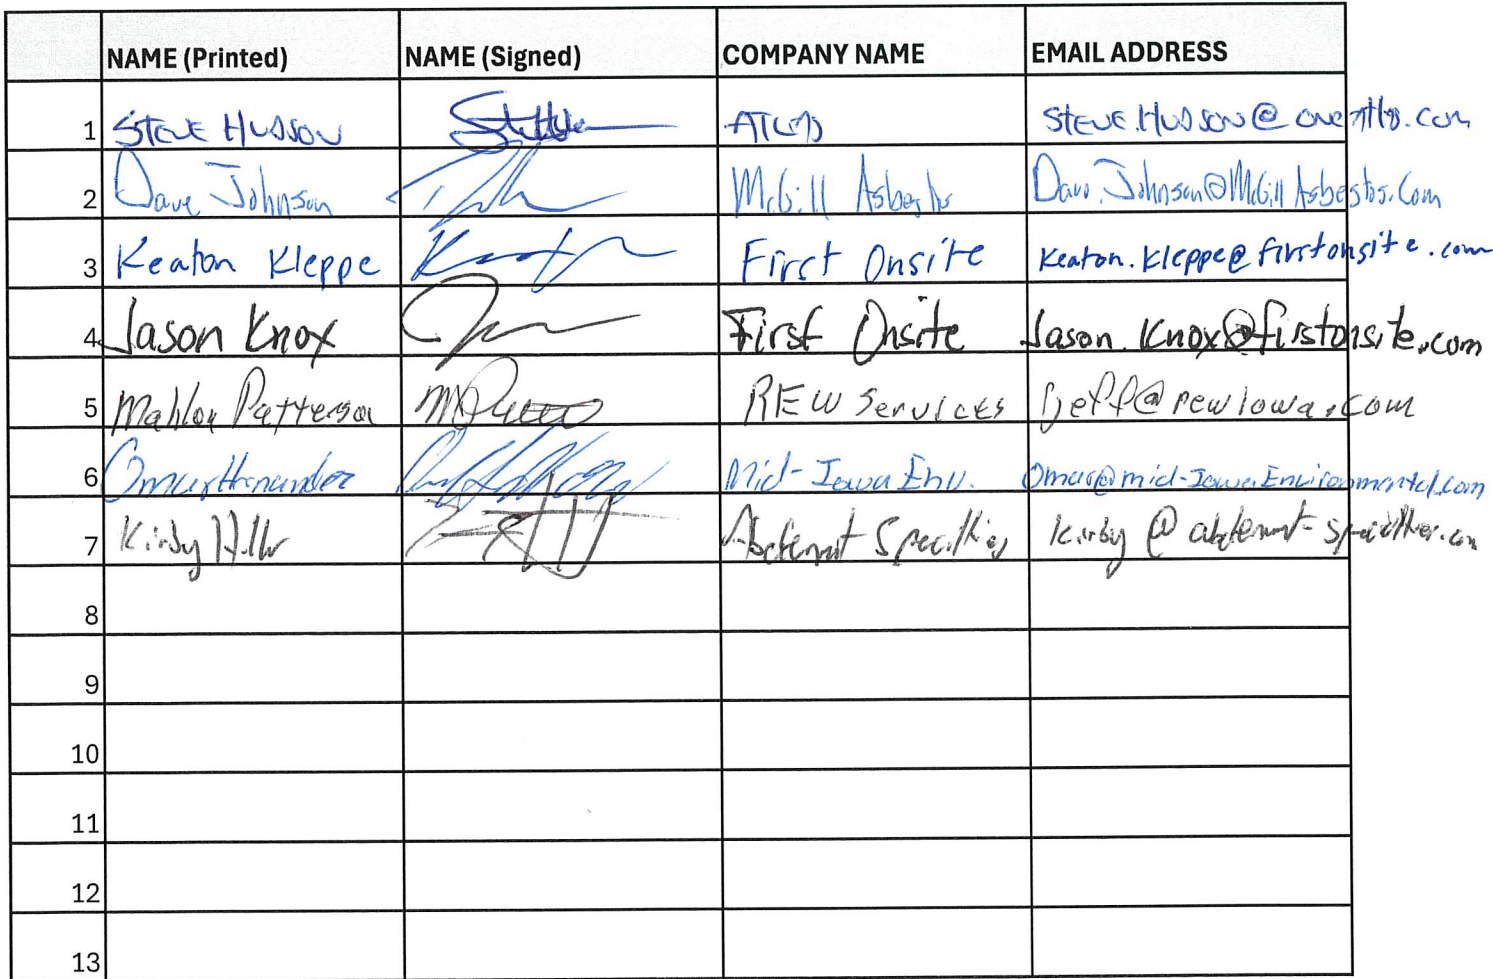 NAME (Printed) NAME (Signed) COMPANY NAME EMAIL ADDRESS
1 STEVE HUDSON STEVE.HUDSON@
2 Dave Johnson McGill Asbestos Dave.Johnson@McGillAsbestos.Com
3 Keaton Kleppe First Onsite Keaton.Kleppe@firstonsite.com
4 Jason Knox First Onsite Jason.Knox@firstonsite.com
5 Mahlon Patterson REW Services jeff@rewiowa.com
6 Omar Hernandez Mid-Iowa Env. Omar@mid-IowaEnvironmental.com
7 Kirby Abatement Specialties kirby@abatement-specialties.com
8
9
10
11
12
13